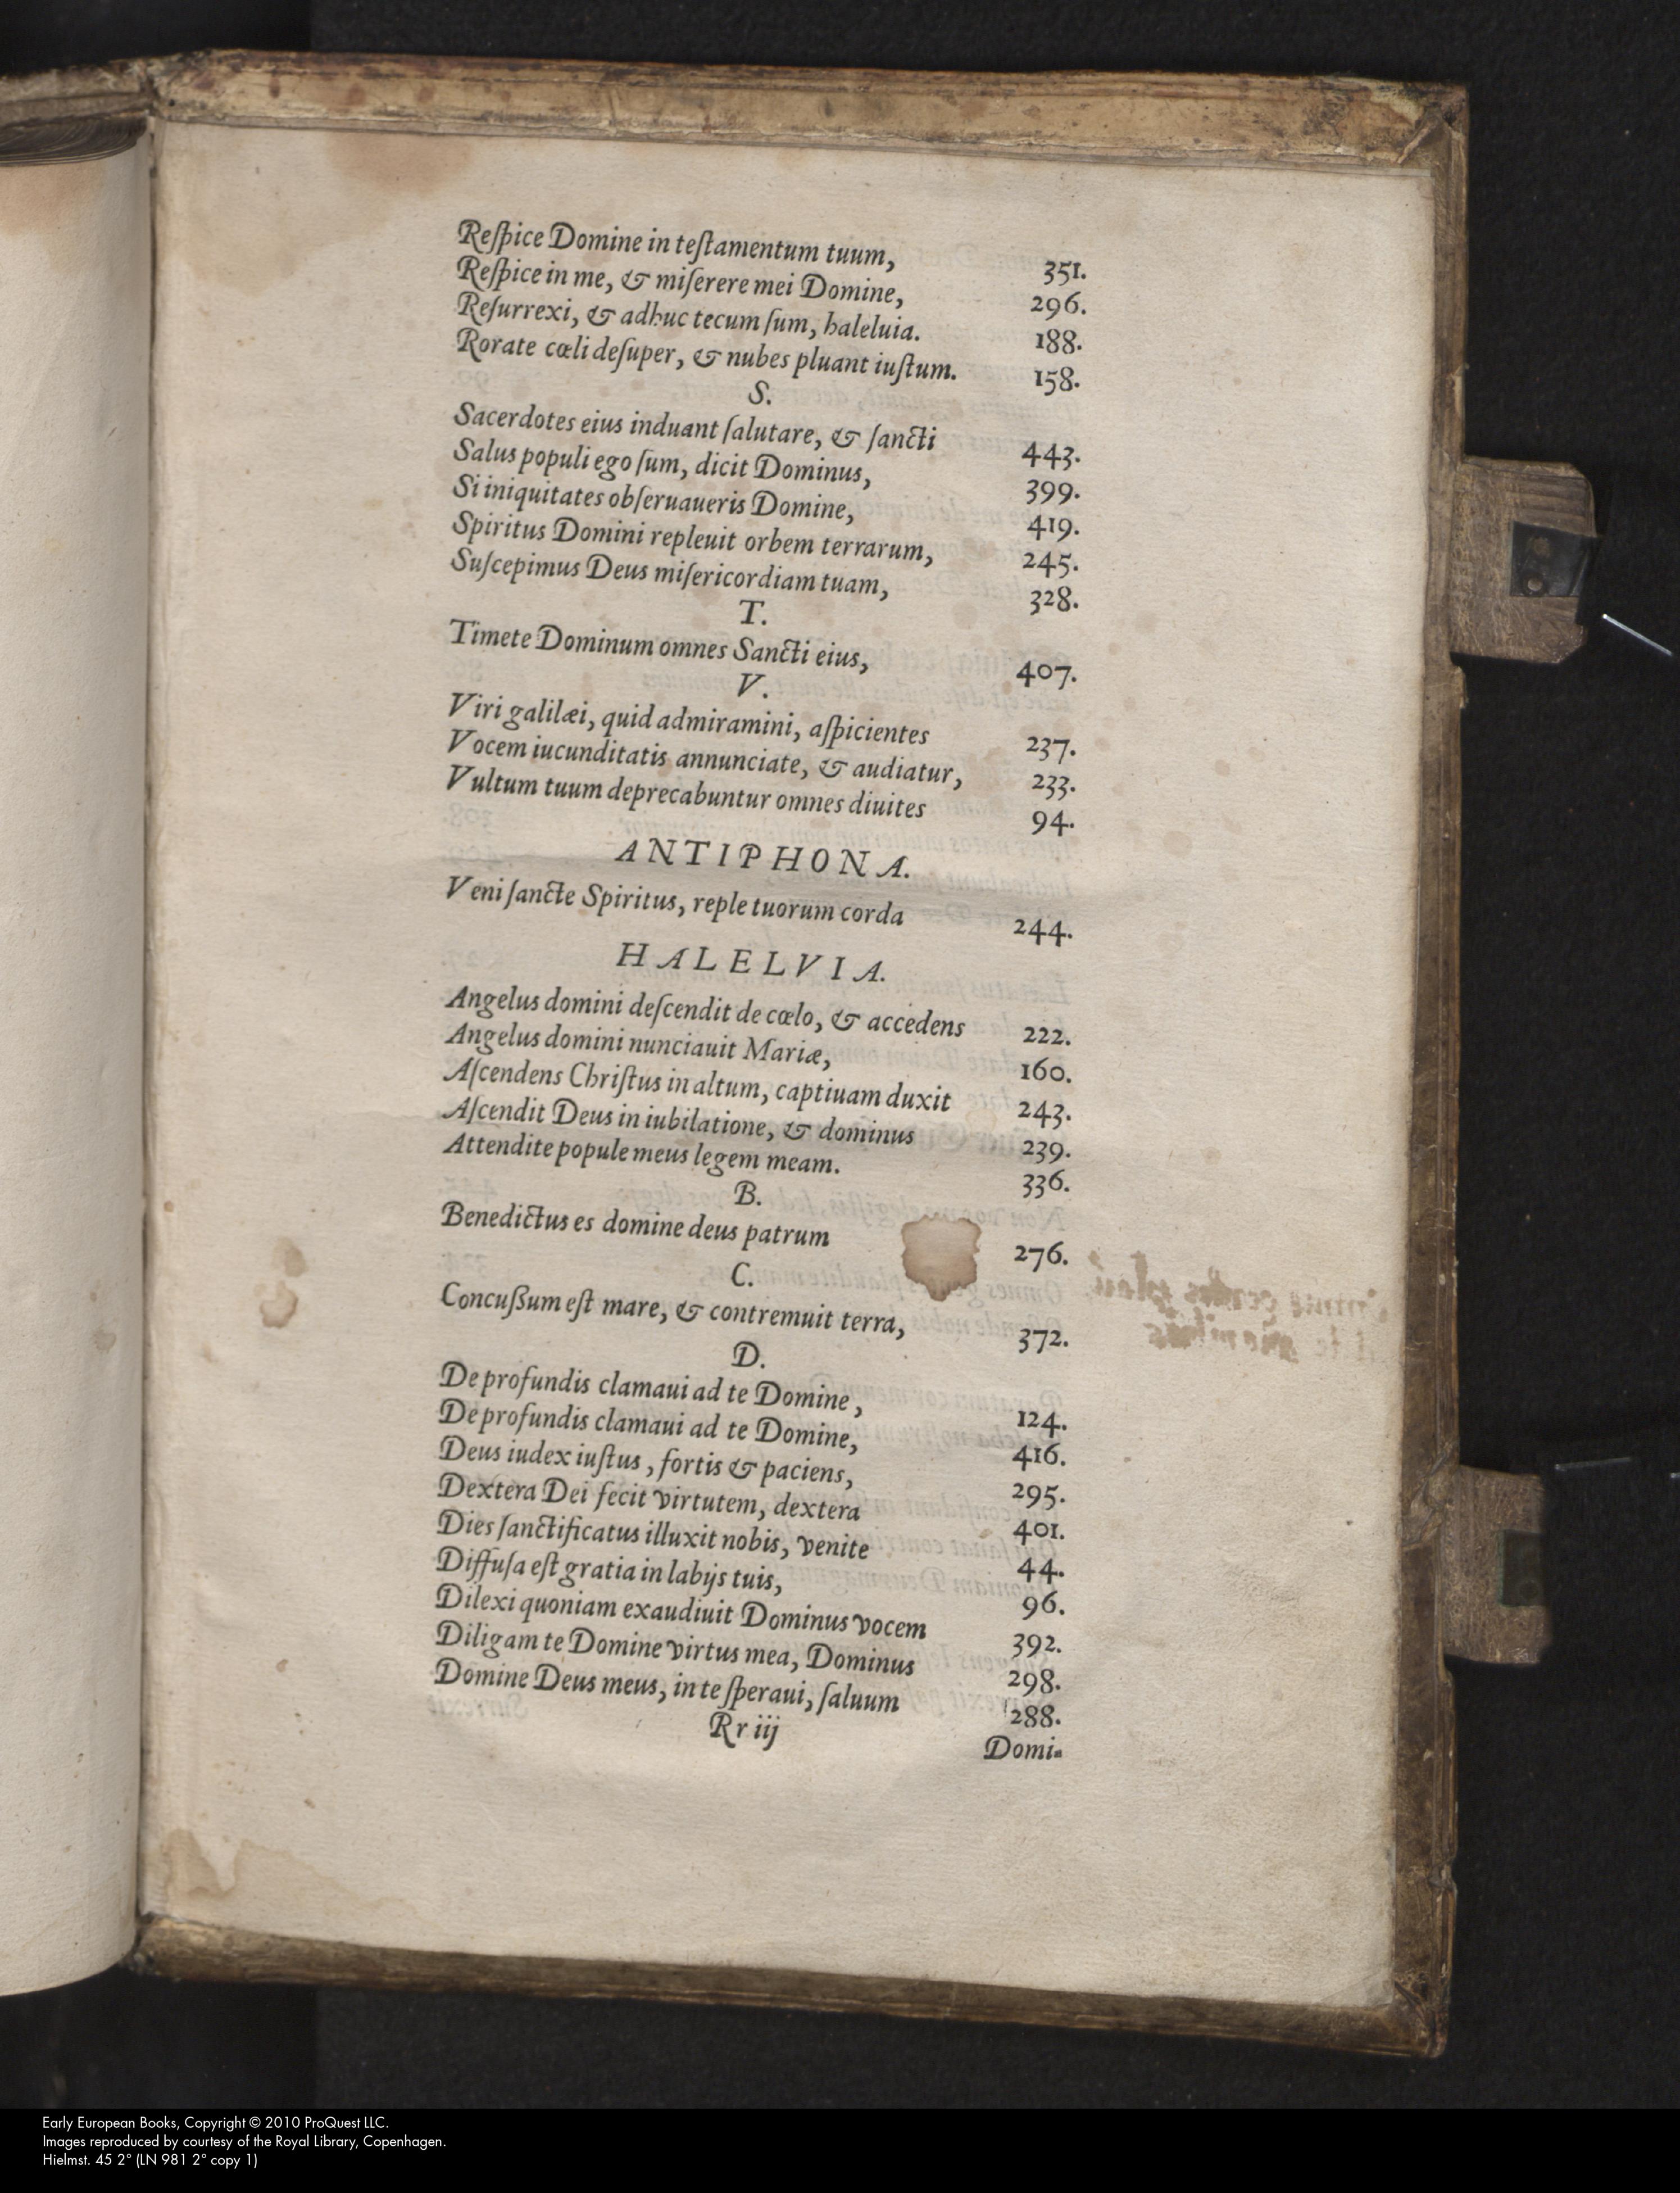 Reſpice Domine in teſtamentum tuum, 351.
Reſpice in me, & miſerere mei Domine, 296.
Reſurrexi, & adhuc tecum ſum, haleluia. 188.
Rorate cœli deſuper, & nubes pluant iuſtum. 158.
S.
Sacerdotes eius induant ſalutare, & ſancti 443.
Salus populi ego ſum, dicit Dominus, 399.
Si iniquitates obſeruaueris Domine, 419.
Spiritus Domini repleuit orbem terrarum, 245.
Suſcepimus Deus miſericordiam tuam, 328.
T.
Timete Dominum omnes Sancti eius, 407.
V.
Viri galilæi, quid admiramini, aſpicientes 237.
Vocem iucunditatis annunciate, & audiatur, 233.
Vultum tuum deprecabuntur omnes diuites 94.
ANTIPHONA.
Veni ſancte Spiritus, reple tuorum corda 244.
HALELVIA.
Angelus domini deſcendit de cœlo, & accedens 222.
Angelus domini nunciauit Mariæ, 160.
Aſcendens Chriſtus in altum, captiuam duxit 243.
Aſcendit Deus in iubilatione, & dominus 239.
Attendite popule meus legem meam. 336.
B.
Benedictus es domine deus patrum 276.
C.
Concuſſum eſt mare, & contremuit terra, 372.
D.
De profundis clamaui ad te Domine, 124.
De profundis clamaui ad te Domine, 416.
Deus iudex iuſtus, fortis & paciens, 295.
Dextera Dei fecit virtutem, dextera 401.
Dies ſanctificatus illuxit nobis, venite 44.
Diffuſa eſt gratia in labijs tuis, 96.
Dilexi quoniam exaudiuit Dominus vocem 392.
Diligam te Domine virtus mea, Dominus 298.
Domine Deus meus, in te ſperaui, ſaluum 288.
Rr iij Domi-
Early European Books, Copyright © 2010 ProQuest LLC.
Images reproduced by courtesy of the Royal Library, Copenhagen.
Hielmst. 45 2° (LN 981 2° copy 1)